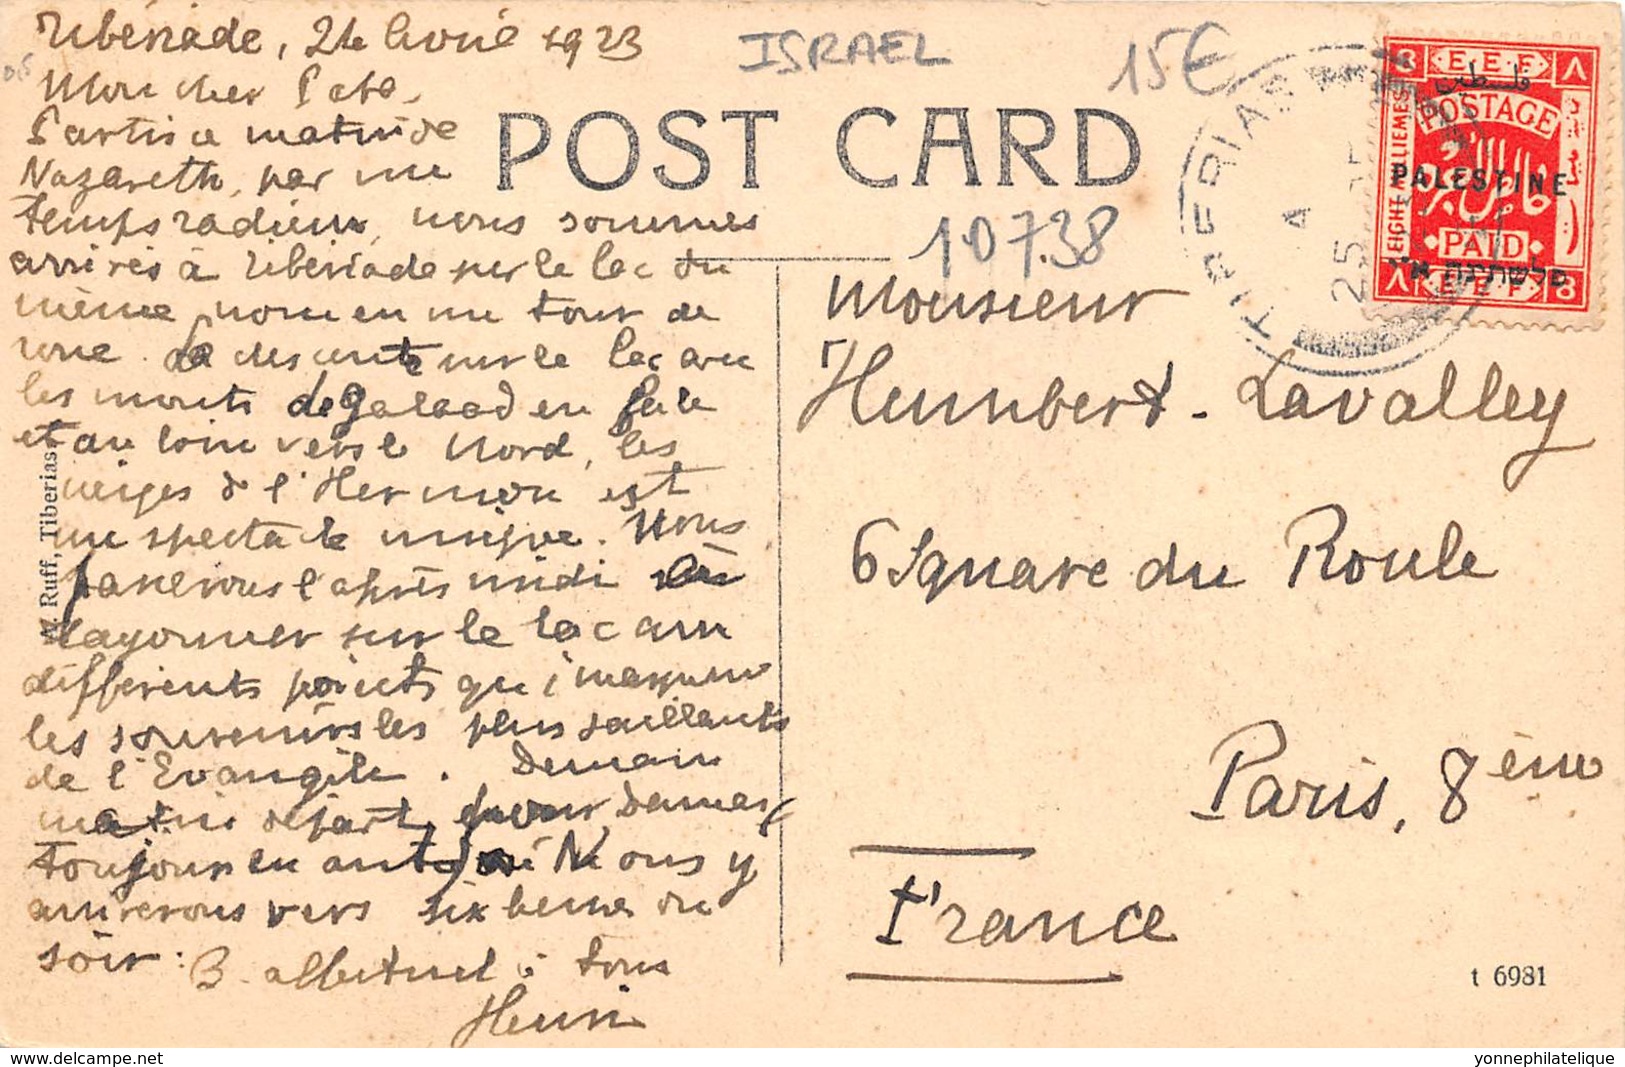 Tibériade, 24 Avril 1923
Mon cher Papa,
Partis ce matin de
Nazareth, par un
temps radieux, nous sommes
arrivés à Tibériade sur le lac du
même nom en un tour de
roue. La descente sur le lac avec
les monts de Galaad en face
et au loin vers le Nord, les
neiges de l'Hermon est
un spectacle unique. Nous
passerons l'après midi à
rayonner sur le lac aux
différents points qui marquent
les souvenirs les plus saillants
de l'Evangile. Demain
matin départ pour Damas,
toujours en auto. Nous y
arriverons vers six heures du
soir. B. affectueux à tous
Henri
ISRAEL
15€
POST CARD
10738
Monsieur
Humbert-Lavalley
6 Square du Roule
Paris, 8ème
France
t 6981
Ruff, Tiberias
TIBERIAS
25 A
8 E.E.F ٨
فلسطين
POSTAGE
EIGHT MILLIEMES
PALESTINE
PAID
פלשתינה א״י
٨ E.E.F 8
delcampe.net
yonnephilatelique